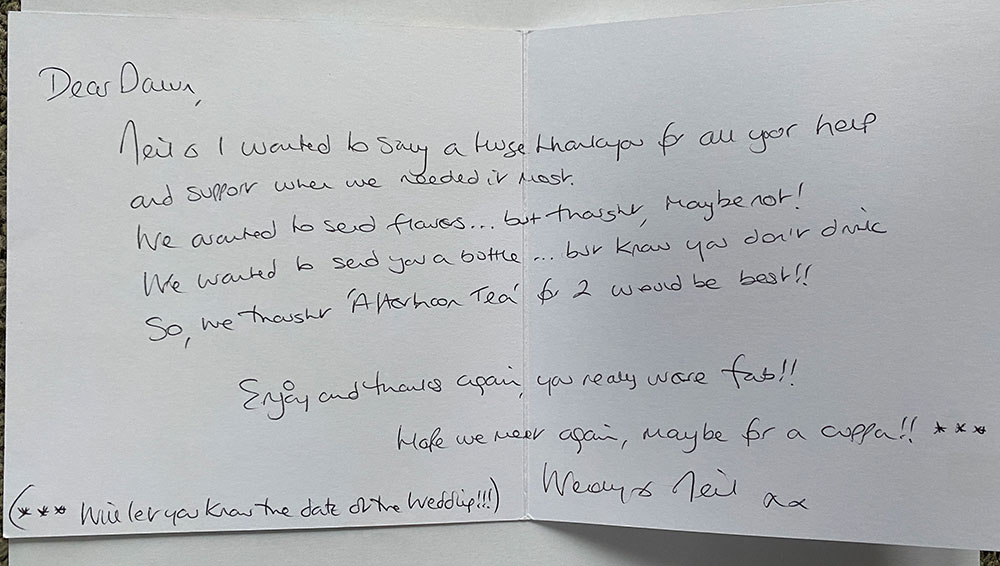 Dear Dawn,
Neil & I wanted to say a huge thankyou for all your help
and support when we needed it most.
We wanted to send flowers... but thought, Maybe not!
We wanted to send you a bottle... but know you don't drink
So, we thought 'Afternoon Tea' for 2 would be best!!
Enjoy and thanks again, you really were fab!!
Hope we meet again, maybe for a cuppa!! ***
Wendy & Neil xx
(*** Will let you know the date of the Wedding!!!)